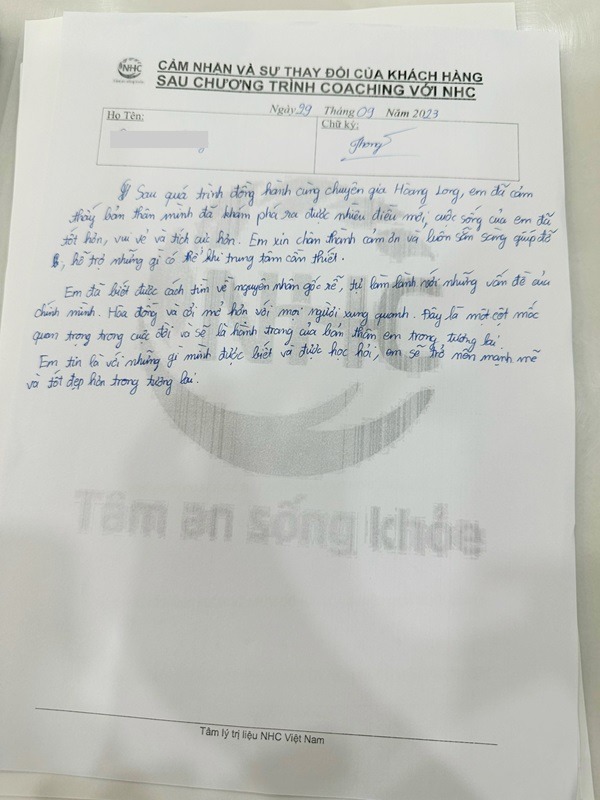 NHC
CẢM NHẬN VÀ SỰ THAY ĐỔI CỦA KHÁCH HÀNG
SAU CHƯƠNG TRÌNH COACHING VỚI NHC
Ngày 29 Tháng 09 Năm 2023
Họ Tên:
Chữ ký:
Phong
Sau quá trình đồng hành cùng chuyên gia Hoàng Long, em đã cảm
thấy bản thân mình đã khám phá ra được nhiều điều mới, cuộc sống của em đã
tốt hơn, vui vẻ và tích cực hơn. Em xin chân thành cảm ơn và luôn sẵn sàng giúp đỡ
, hỗ trợ những gì có thể khi trung tâm cần thiết.
Em đã biết được cách tìm về nguyên nhân gốc rễ, tự làm lành với những vấn đề của
chính mình. Hòa đồng và cởi mở hơn với mọi người xung quanh. Đây là một cột mốc
quan trọng trong cuộc đời và sẽ là hành trang của bản thân em trong tương lai.
Em tin là với những gì mình được biết và được học hỏi, em sẽ trở nên mạnh mẽ
và tốt đẹp hơn trong tương lai.
NHC
Tâm an sống khỏe
Tâm lý trị liệu NHC Việt Nam